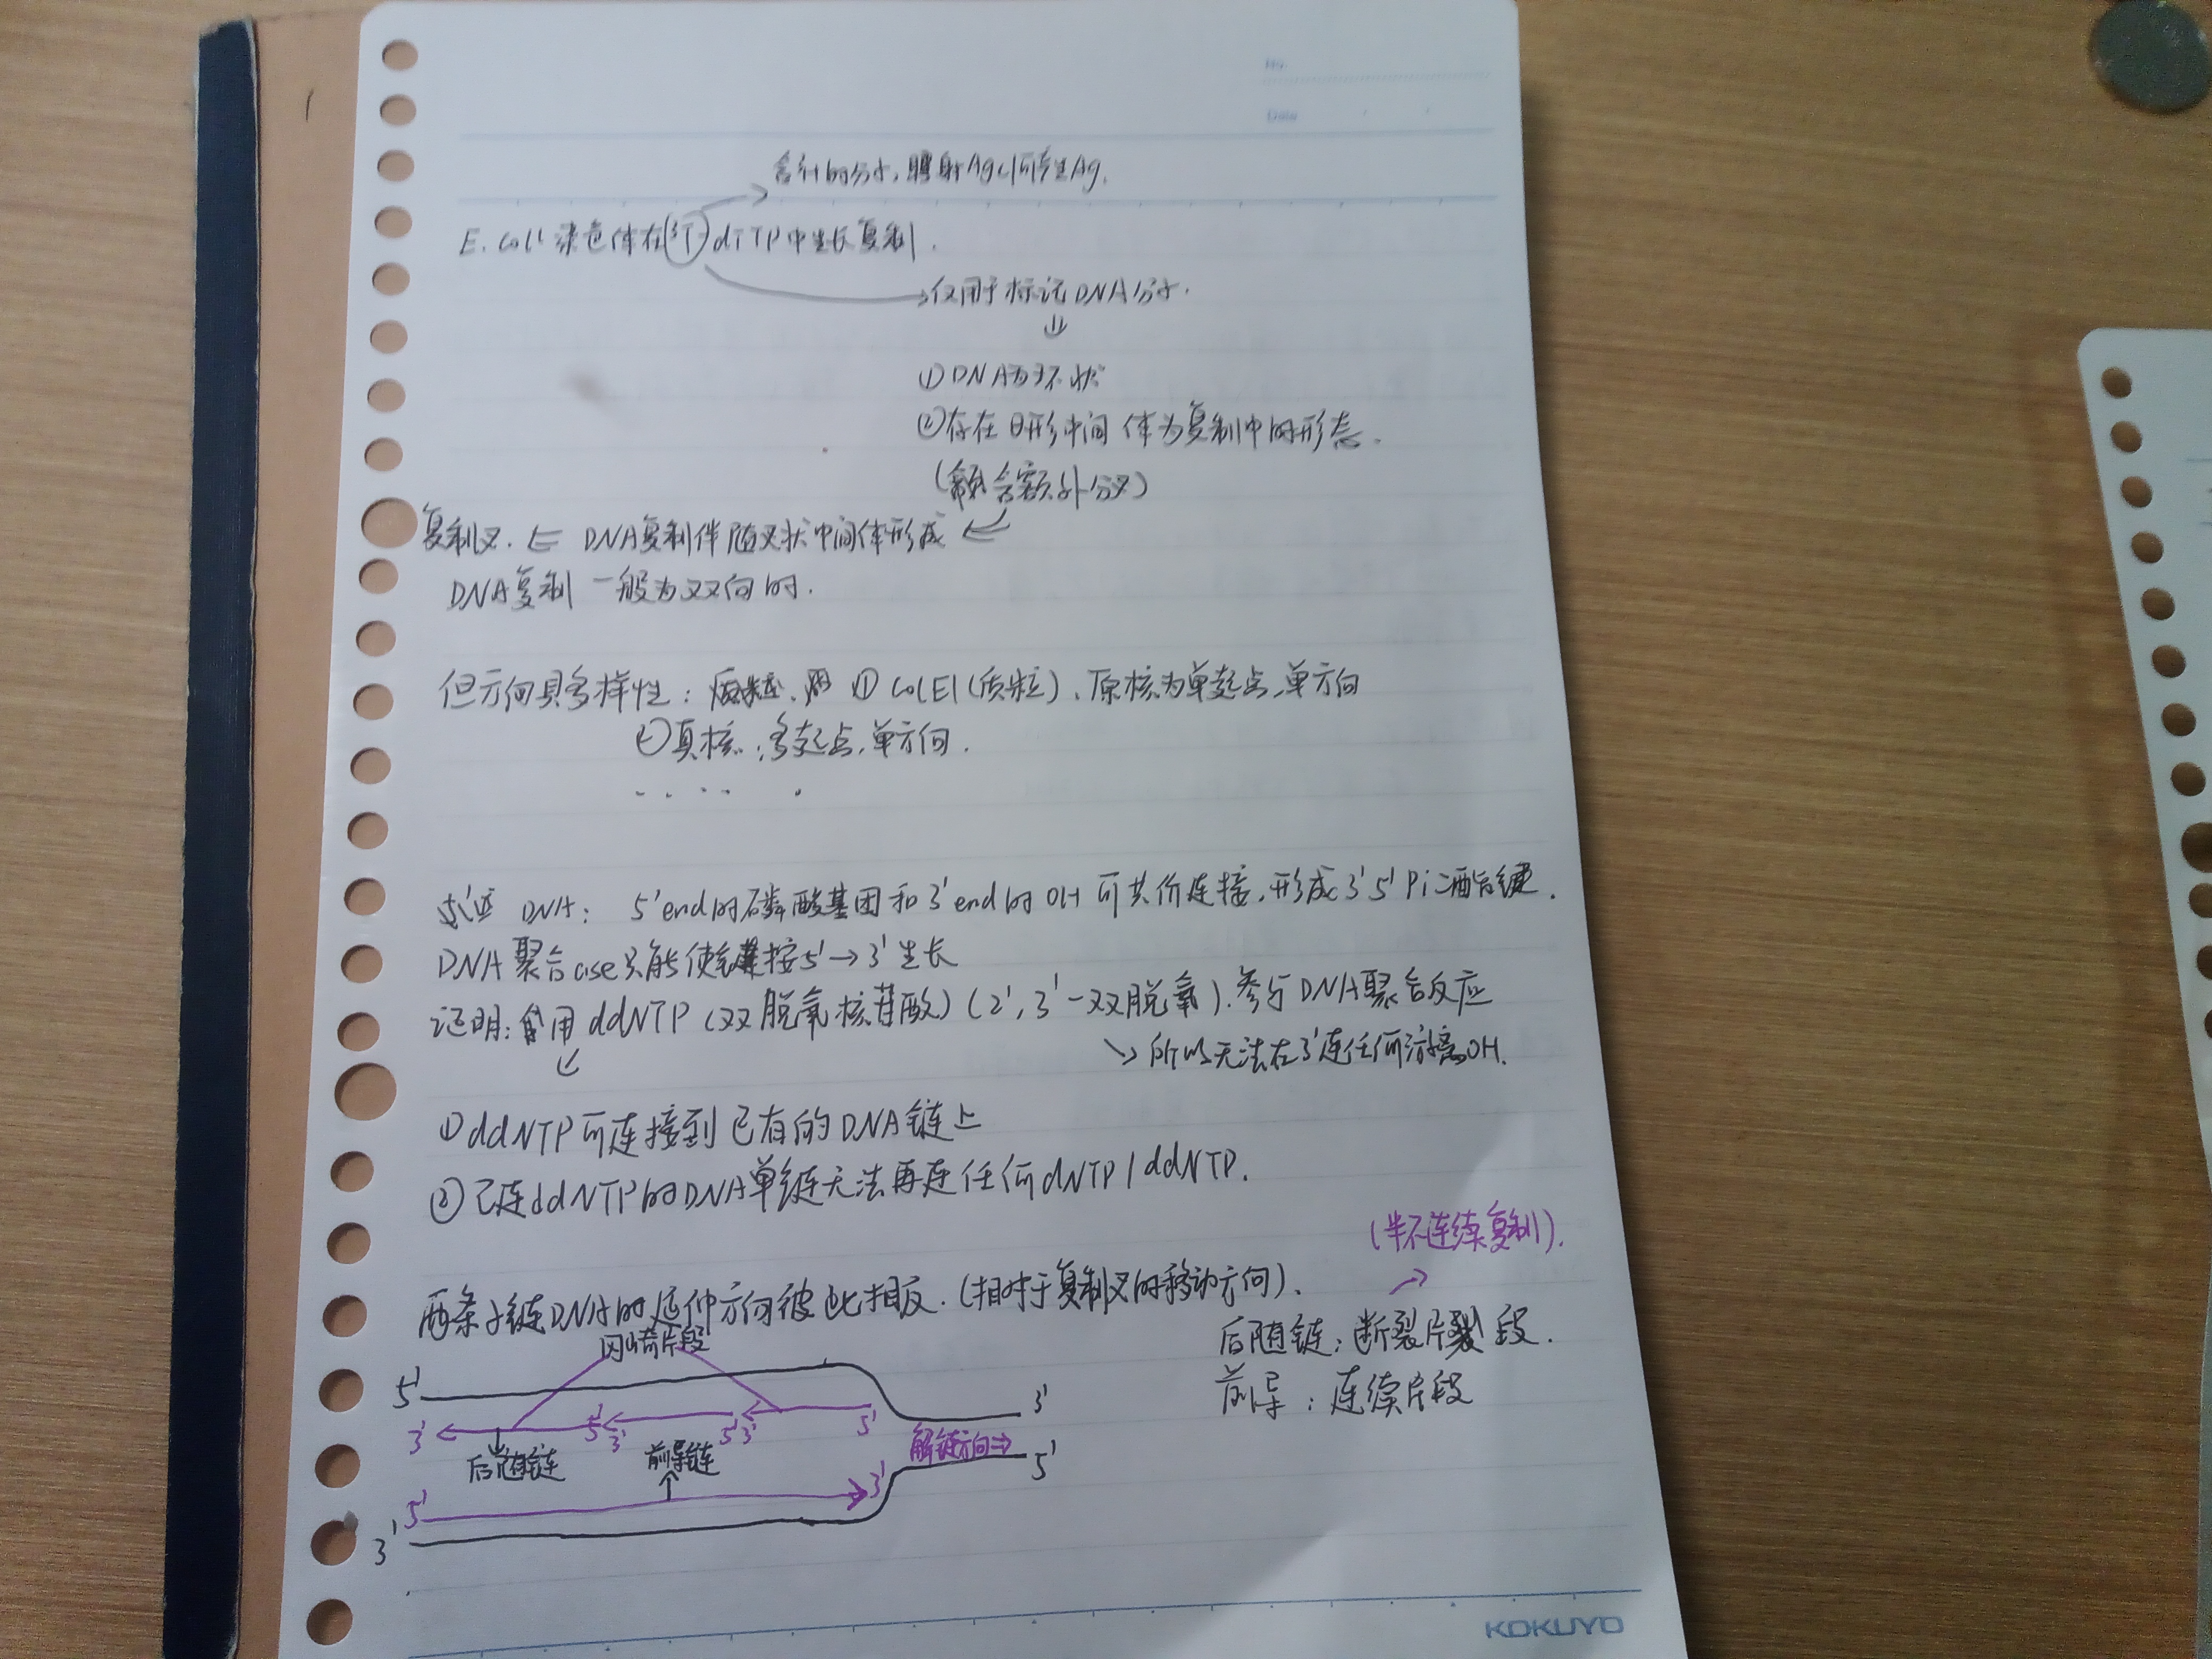 No.
Date
含³H的分子,照射AgCl可产生Ag.
E.coli 染色体在(³T)dTTP中生长复制.
→仅用于标记DNA分子.
⇓
①DNA为环状
②存在θ形中间体为复制中的形态.
(含额外分叉)
复制叉. ⇐ DNA复制伴随叉状中间体形成 ⇐
DNA复制一般为双向的.
但方向具多样性: ① ColE1(质粒)、原核为单起点,单方向
②真核:多起点,单方向.
DNA: 5'end的磷酸基团和3'end的OH可共价连接,形成3'5'Pi二酯键.
DNA聚合ase只能使链按5'→3'生长
证明:用ddNTP(双脱氧核苷酸)(2',3'-双脱氧).参与DNA聚合反应
↘所以无法在3'连任何游离OH.
①ddNTP可连接到已有的DNA链上
②已连ddNTP的DNA单链无法再连任何dNTP/ddNTP.
(半不连续复制).
两条子链DNA的延伸方向彼此相反.(相对于复制叉的移动方向).
后随链:断裂片段.
前导:连续片段
冈崎片段
5' 3'
3' 5' 3' 5' 3' 5'
解链方向⇒
后随链 前导链
5' 3' 5'
3'
KOKUYO